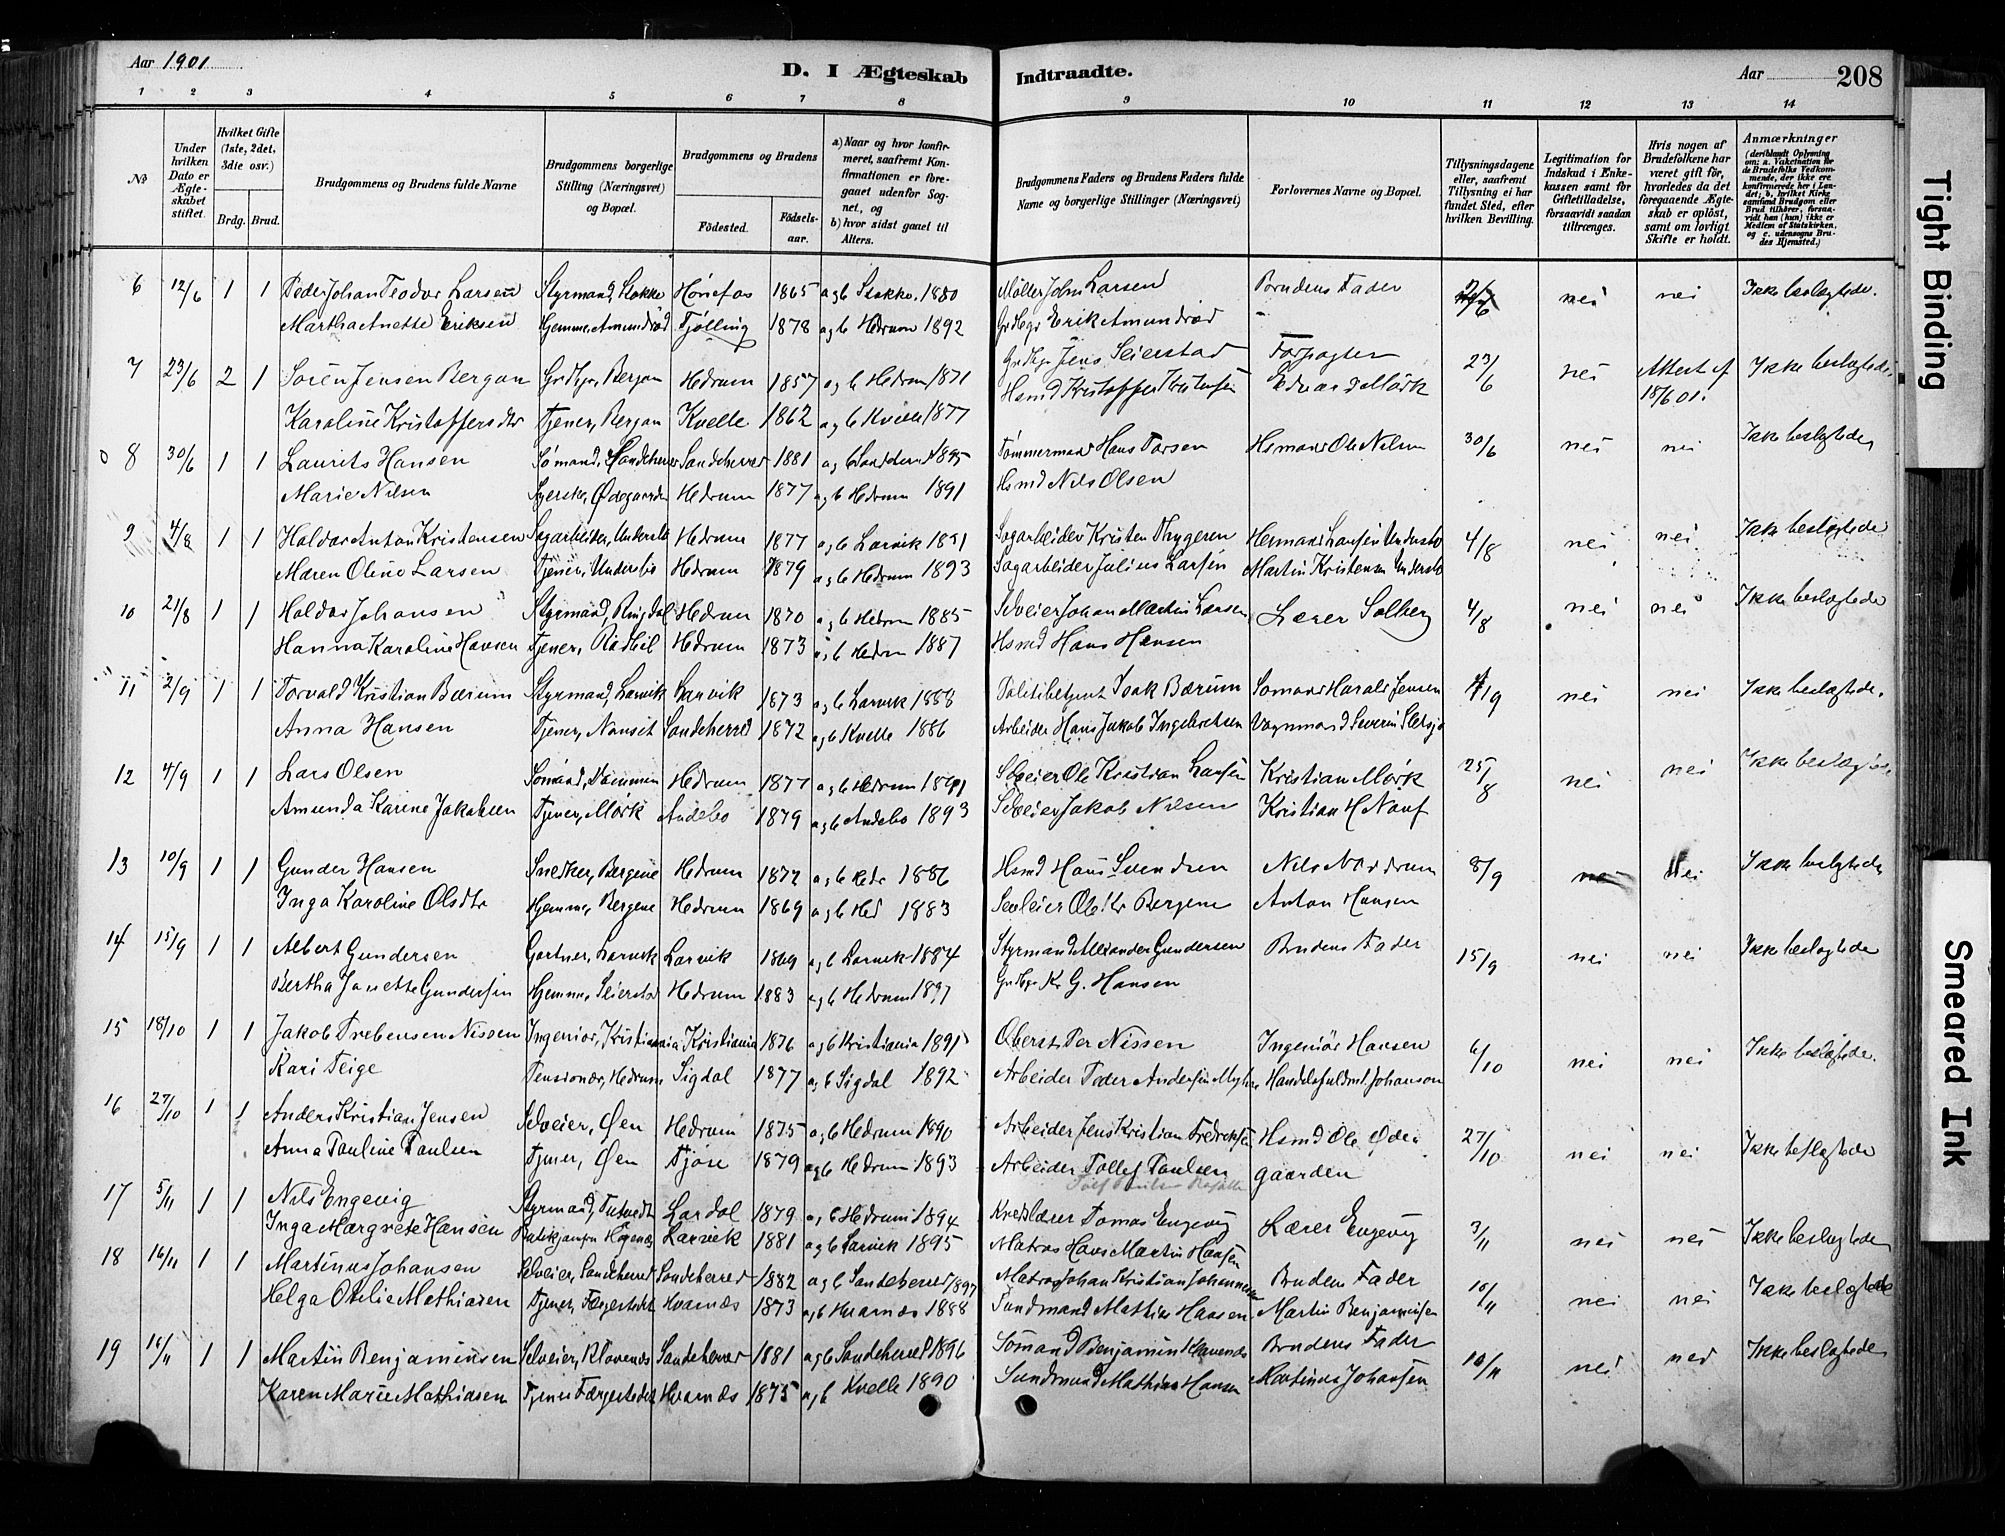 Aar 1901
D. I Ægteskab Indtraadte.
Aar 208
1 2 3 4 5 6 7 8 9 10 11 12 13 14
№
Under hvilken Dato er Ægteskabet stiftet.
Hvilket Gifte (1ste, 2det, 3die osv.)
Brdg. Brud.
Brudgommens og Brudens fulde Navne
Brudgommens borgerlige Stilling (Næringsvei) og Bopæl.
Brudgommens og Brudens
Födested. Födsels-aar.
a) Naar og hvor konfirmeret, saafremt Konfirmationen er foregaaet udenfor Sognet, og b) hvor sidst gaaet til Alters.
Brudgommens Faders og Brudens Faders fulde Navne og borgerlige Stillinger (Næringsvei)
Forlovernes Navne og Bopæl.
Tillysningsdagene eller, saafremt Tillysning ei har fundet Sted, efter hvilken Bevilling.
Legitimation for Indskud i Enkekassen samt for Giftetilladelse, forsaavidt saadan tiltrænges.
Hvis nogen af Brudefolkene har været gift för, hvorledes da det foregaaende Ægteskab er oplöst, samt om lovligt Skifte er holdt.
Anmærkninger (deriblandt Oplysning om: a. Vakcination for de Brudefolks Vedkommende, der ikke ere konfirmerede her i Landet; b. hvilket Kirkesamfund Brudgom eller Brud tilhörer, forsaavidt han (hun) ikke er Medlem af Statskirken, og c. udensogns Brudes Hjemsted.)
6 12/6 1 1 Peder Johan Teodor Larsen Styrmand, Stokke Hönefos 1865 a og b Stokke 1880 Möller John Larsen Brudens Fader nei nei Ikke beslægtede.
Martha Anette Eriksen Hjemme, Amundröd Tjølling 1878 a og b Hedrum 1892 Grdbgr Erik Amundröd
7 23/6 2 1 Sören Jensen Bergan Grdbgr, Bergan Hedrum 1857 a og b Hedrum 1871 Grdbgr Jens Seierstad Forpagter 23/6 nei Attest af Ikke beslægtede
Karoline Kristoffersdtr Tjener, Bergan Kvelle 1862 a og b Kvelle 1877 Hsmd Kristoffer Edvard Mörk 18/6 01.
8 30/6 1 1 Laurits Hansen Sømand, Sandeherred Sandeherred 1881 a og b 1895 Tømmermand Hans Hsmand Ole Nilsen 30/6 nei nei Ikke beslegtede
Marie Nilsen Syerske, Ødegaarden Hedrum 1877 a og b Hedrum 1891 Hsmd Nils Olsen
9 4/8 1 1 Haldor Anton Kristensen Sagarbeider, Undersbo Hedrum 1877 a og b Larvik 1891 Sagarbeider Kristen Herman Larsen Undersbo 4/8 nei nei Ikke beslægtede
Maren Oline Larsen Tjener, Undersbo Hedrum 1879 a og b Hedrum 1893 Sagarbeider Julius Larsen Martin Kristensen Undersbo
10 21/8 1 1 Haldor Johansen Styrmand, Ringdal Hedrum 1870 a og b Hedrum 1885 Selveier Johan Martin Larsen Lærer Solberg 4/8 nei nei Ikke beslægtede
Hanna Karoline Hansen Tjener, Hedrum 1873 a og b Hedrum 1887 Hsmd Hans Hansen
11 2/9 1 1 Torvald Kristian Bærum Styrmand, Larvik Larvik 1873 a og b Larvik 1888 Politibetjent Isak Bærum Sømand Harald Jensen 1/9 nei nei Ikke beslægtede.
Anna Hansen Tjener, Nanset Sandeherred 1872 a og b Kvelle 1886 Arbeider Hans Jakob Ingebretsen Vognmand Severin
12 4/9 1 1 Lars Olsen Sømand, Dammen Hedrum 1877 a og b Hedrum 1891 Selveier Ole Kristian Larsen Kristian Mørk 25/8 nei nei Ikke beslægtede
Amunda Karine Jakobsen Tjener, Mørk Andebo 1879 a og b Andebo 1893 Selveier Jakob Nilsen Kristian H Nauf
13 10/9 1 1 Gunder Hansen Snedker, Bergene Hedrum 1872 a og b Hedr 1886 Hsmd Hans Svendsen Nils Nordrum 8/9 nei nei Ikke beslegtede
Inga Karoline Olsdtr Hjemme, Bergene Hedrum 1869 a og b Hed 1883 Selveier Ole Bergene Anton Hansen
14 15/9 1 1 Albert Gundersen Gartner, Larvik Larvik 1869 a og b Larvik 1884 Styrmand Alexander Gundersen Brudens Fader 15/9 nei nei Ikke beslægtede
Bertha Janette Gundersen Hjemme, Seierstad Hedrum 1883 a og b Hedrum 1897 Grdbgr K. G. Hansen
15 18/10 1 1 Jakob Trebensen Nissen Ingeniør, Kristiania Kristiania 1876 a og b Kristiania 1891 Oberst Per Nissen Ingeniör Hansen 6/10 nei nei Ikke beslægtede.
Kari Teige Pensionær, Hedrum Sigdal 1877 a og b Sigdal 1892 Arbeider Peder Andersen Handelsfuldmt. Johanson
16 27/10 1 1 Anders Kristian Jensen Selveier, Øen Hedrum 1875 a og b Hedrum 1890 Arbeider Jens Kristian Fredriksen Hsmd Ole Øde- 27/10 nei nei Ikke beslægtede
Anna Pauline Paulsen Tjener, Øen Tjøse 1879 a og b Hedrum 1893 Arbeider Tollef Paulsen gaarden
17 5/11 1 1 Nils Engevig Styrmand, Tutvedt Lardal 1879 a og b Hedrum 1894 Kredslærer Tomas Engevig Lærer Engevig 3/11 nei nei Ikke beslægtede
Inga Margrete Hansen Larvik 1881 a og b Larvik 1895 Matros Hans Martin Hansen
18 16/11 1 1 Martinus Johansen Selveier, Sandeherred Sandeherred 1882 a og b Sandeherred 1897 Matros Johan Kristian Johannesen Brudens Fader 10/11 nei nei Ikke beslægtede
Helga Otilie Mathiasen Tjener, Færgestedet Hvarnæs 1873 a og b Hvarnæs 1888 Sundmand Mathias Hansen Martin Benjaminsen
19 16/11 1 1 Martin Benjaminsen Selveier, Klavenæs Sandeherred 1881 a og b Sandeherred 1896 Sömand Benjamin Klavenæs Brudens Fader 10/11 nei nei Ikke beslægtede
Karen Marie Mathiasen Tjener Færgestedet Hvarnæs 1875 a og b Kvelle 1890 Sundmand Mathias Hansen Martinus Johansen
Tight Binding
Smeared Ink